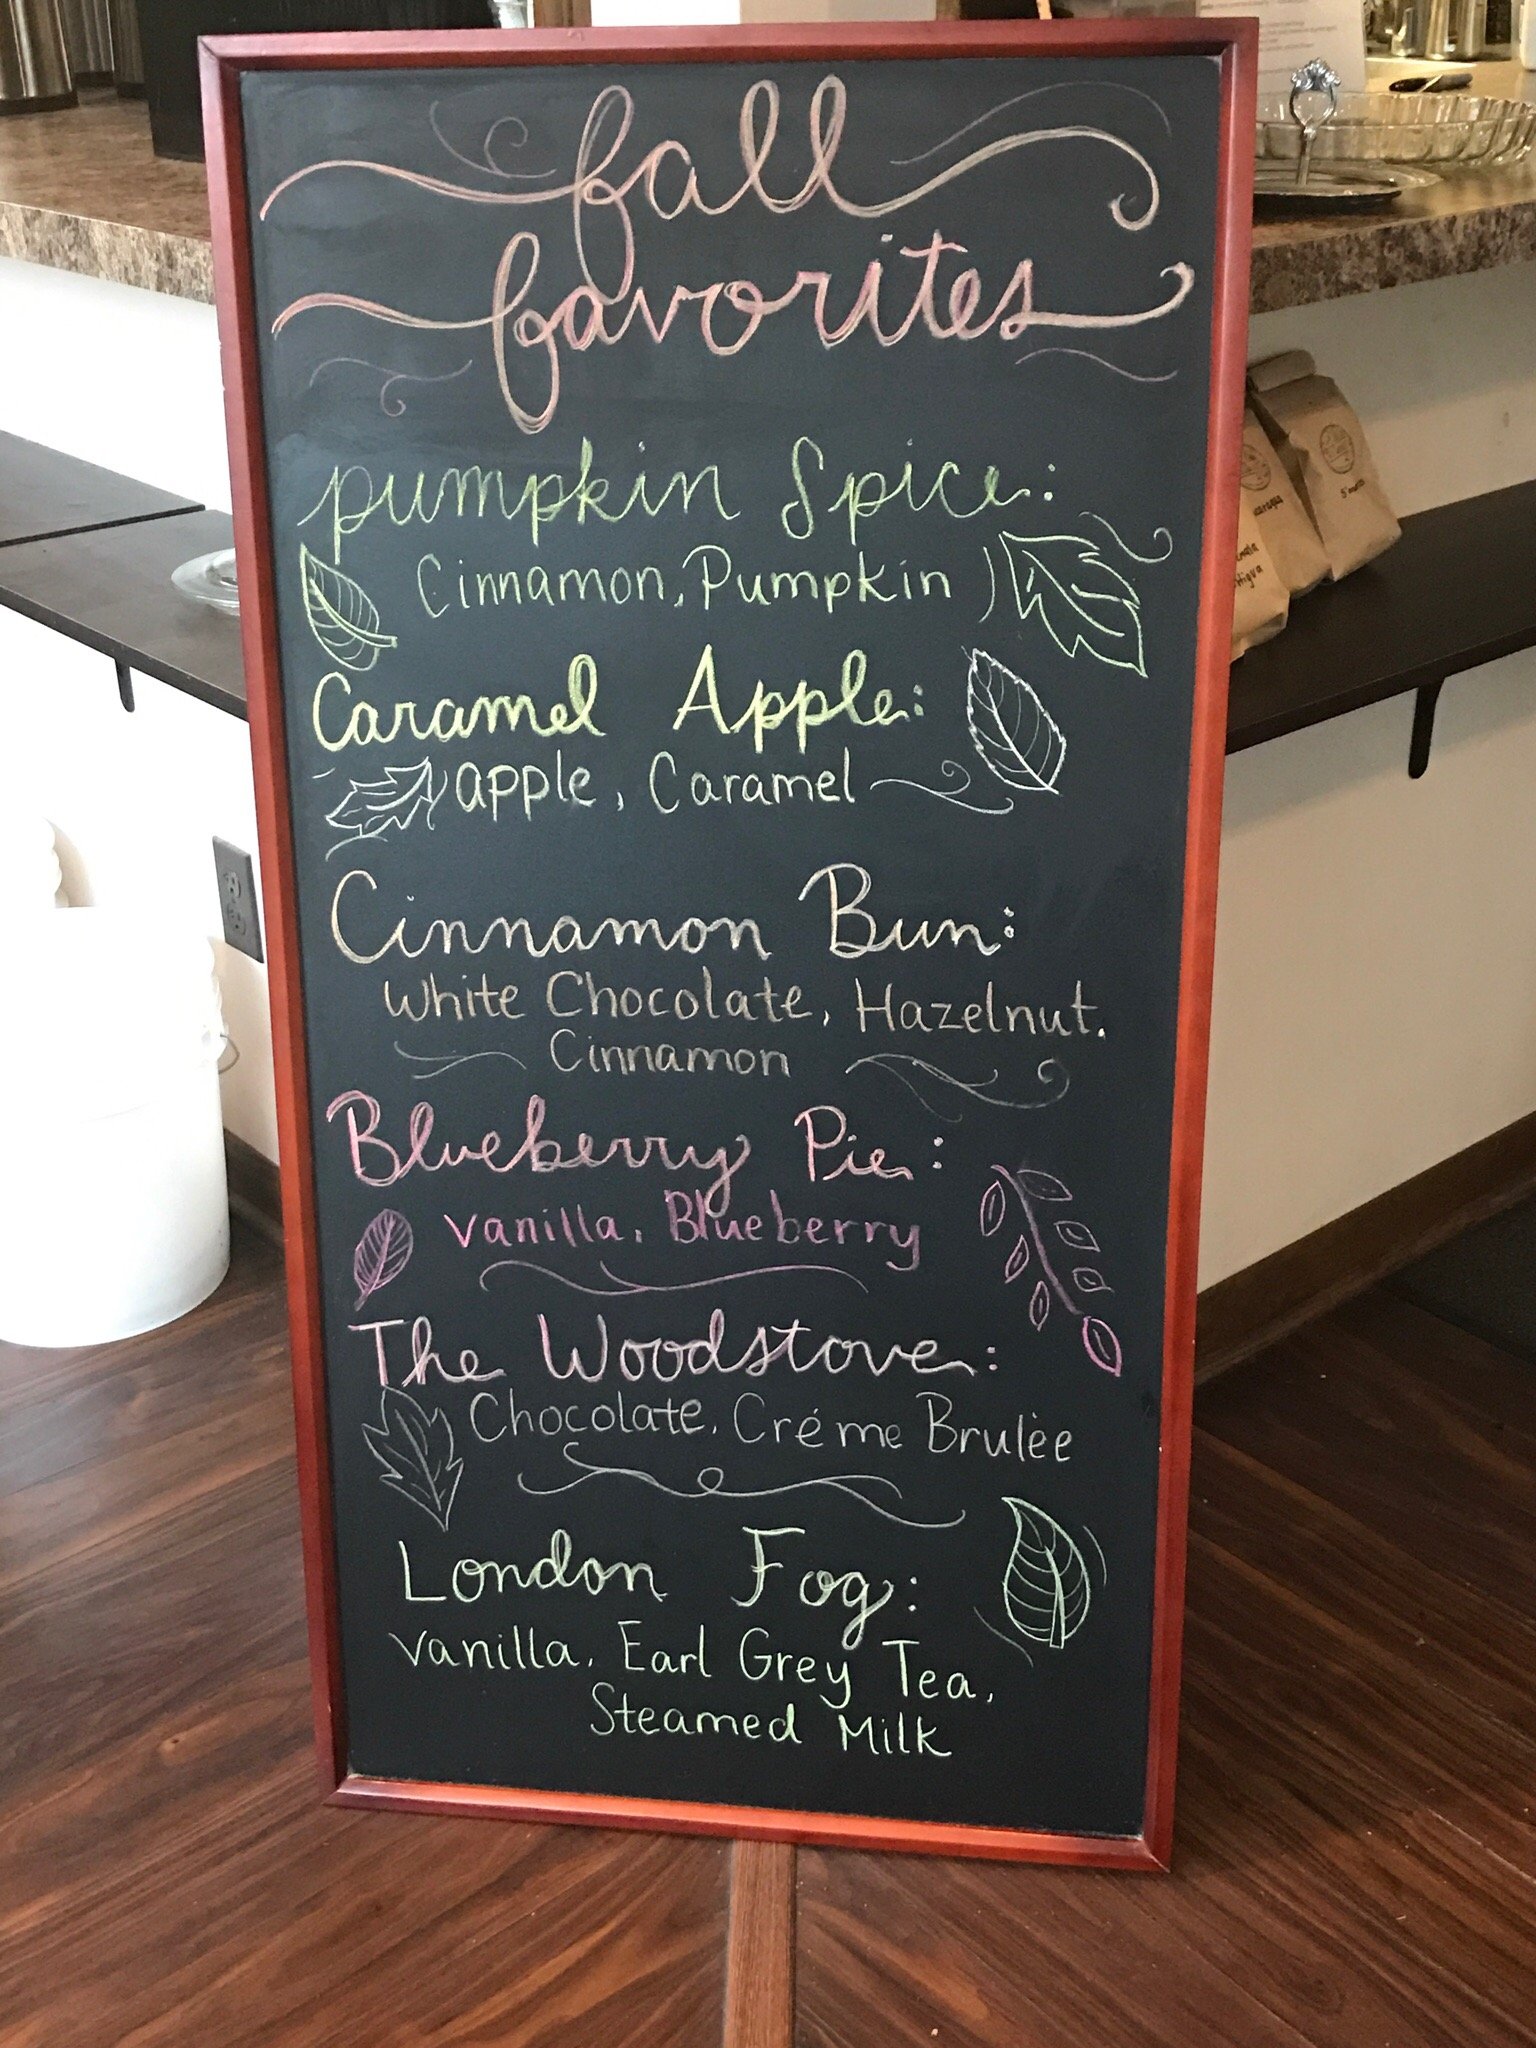 fall
favorites
pumpkin Spice:
Cinnamon, Pumpkin
Caramel Apple:
apple, Caramel
Cinnamon Bun:
White Chocolate, Hazelnut.
Cinnamon
Blueberry Pie:
vanilla, Blueberry
The Woodstove:
Chocolate, Créme Brulèe
London Fog:
vanilla, Earl Grey Tea,
Steamed Milk